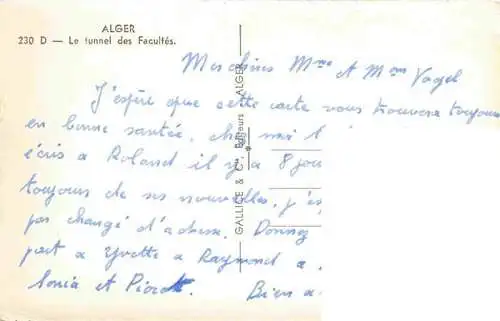 ALGER
230 D — Le tunnel des Facultés.
GALLICE & Cie Editeurs ALGER
Mes chères Mme A Mr Vogel
J'espère que cette carte vous trouvera toujours
en bonne santée, chez moi
écris a Roland il y a 8 jou
toujours de ses nouvelles, j'es
pas changé d'adresse. Donnez
part a Yvette a Raymond a
Sonia et Bien a